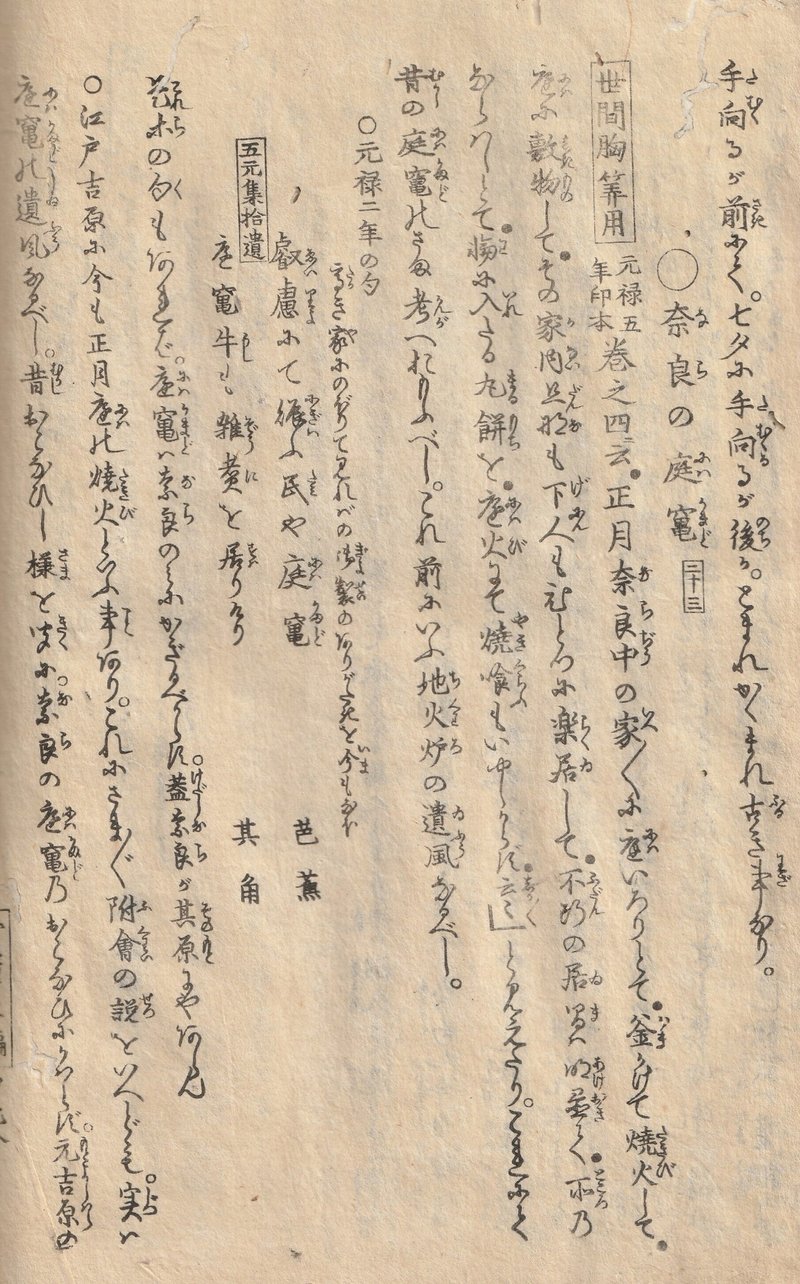 手向るが前にて。七夕に手向るが後か。とまれかくまれ古き事なり。
○奈良の庭竈 二十三
世間胸筭用 元禄五年印本 巻之四云。正月奈良中の家〱に庭いろりとて。釜かけて焼火して。
庭に敷物して。その家内旦那も下人もひとつに楽居して。不断の居間は明置て。所の
ならはしとて。輪に入たる丸餅を。庭火にて焼喰もいやしからず 云云 と見えたり。これにて
昔の庭竈のさま考へおもふべし。これ前にいふ地火炉の遺風なるべし。
○元禄二年の句
高き家にのぼりて見ればの御製のありがたきを今もなほ
叡慮にて賑ふ民や庭竈 芭蕉
五元集拾遺
庭竈牛も雑煮を居りけり 其角
是等の句もあれど。庭竈は奈良のみにかぎるべからず。蓋奈良が其原にやあらん
○江戸吉原に今も正月庭の焼火といふ事あり。これにさま〲附會の説をいへども。実は
庭竈の遺風なるべし。昔おこなひし様を聞に奈良の庭竈乃おこなひにかはらず。元吉原の